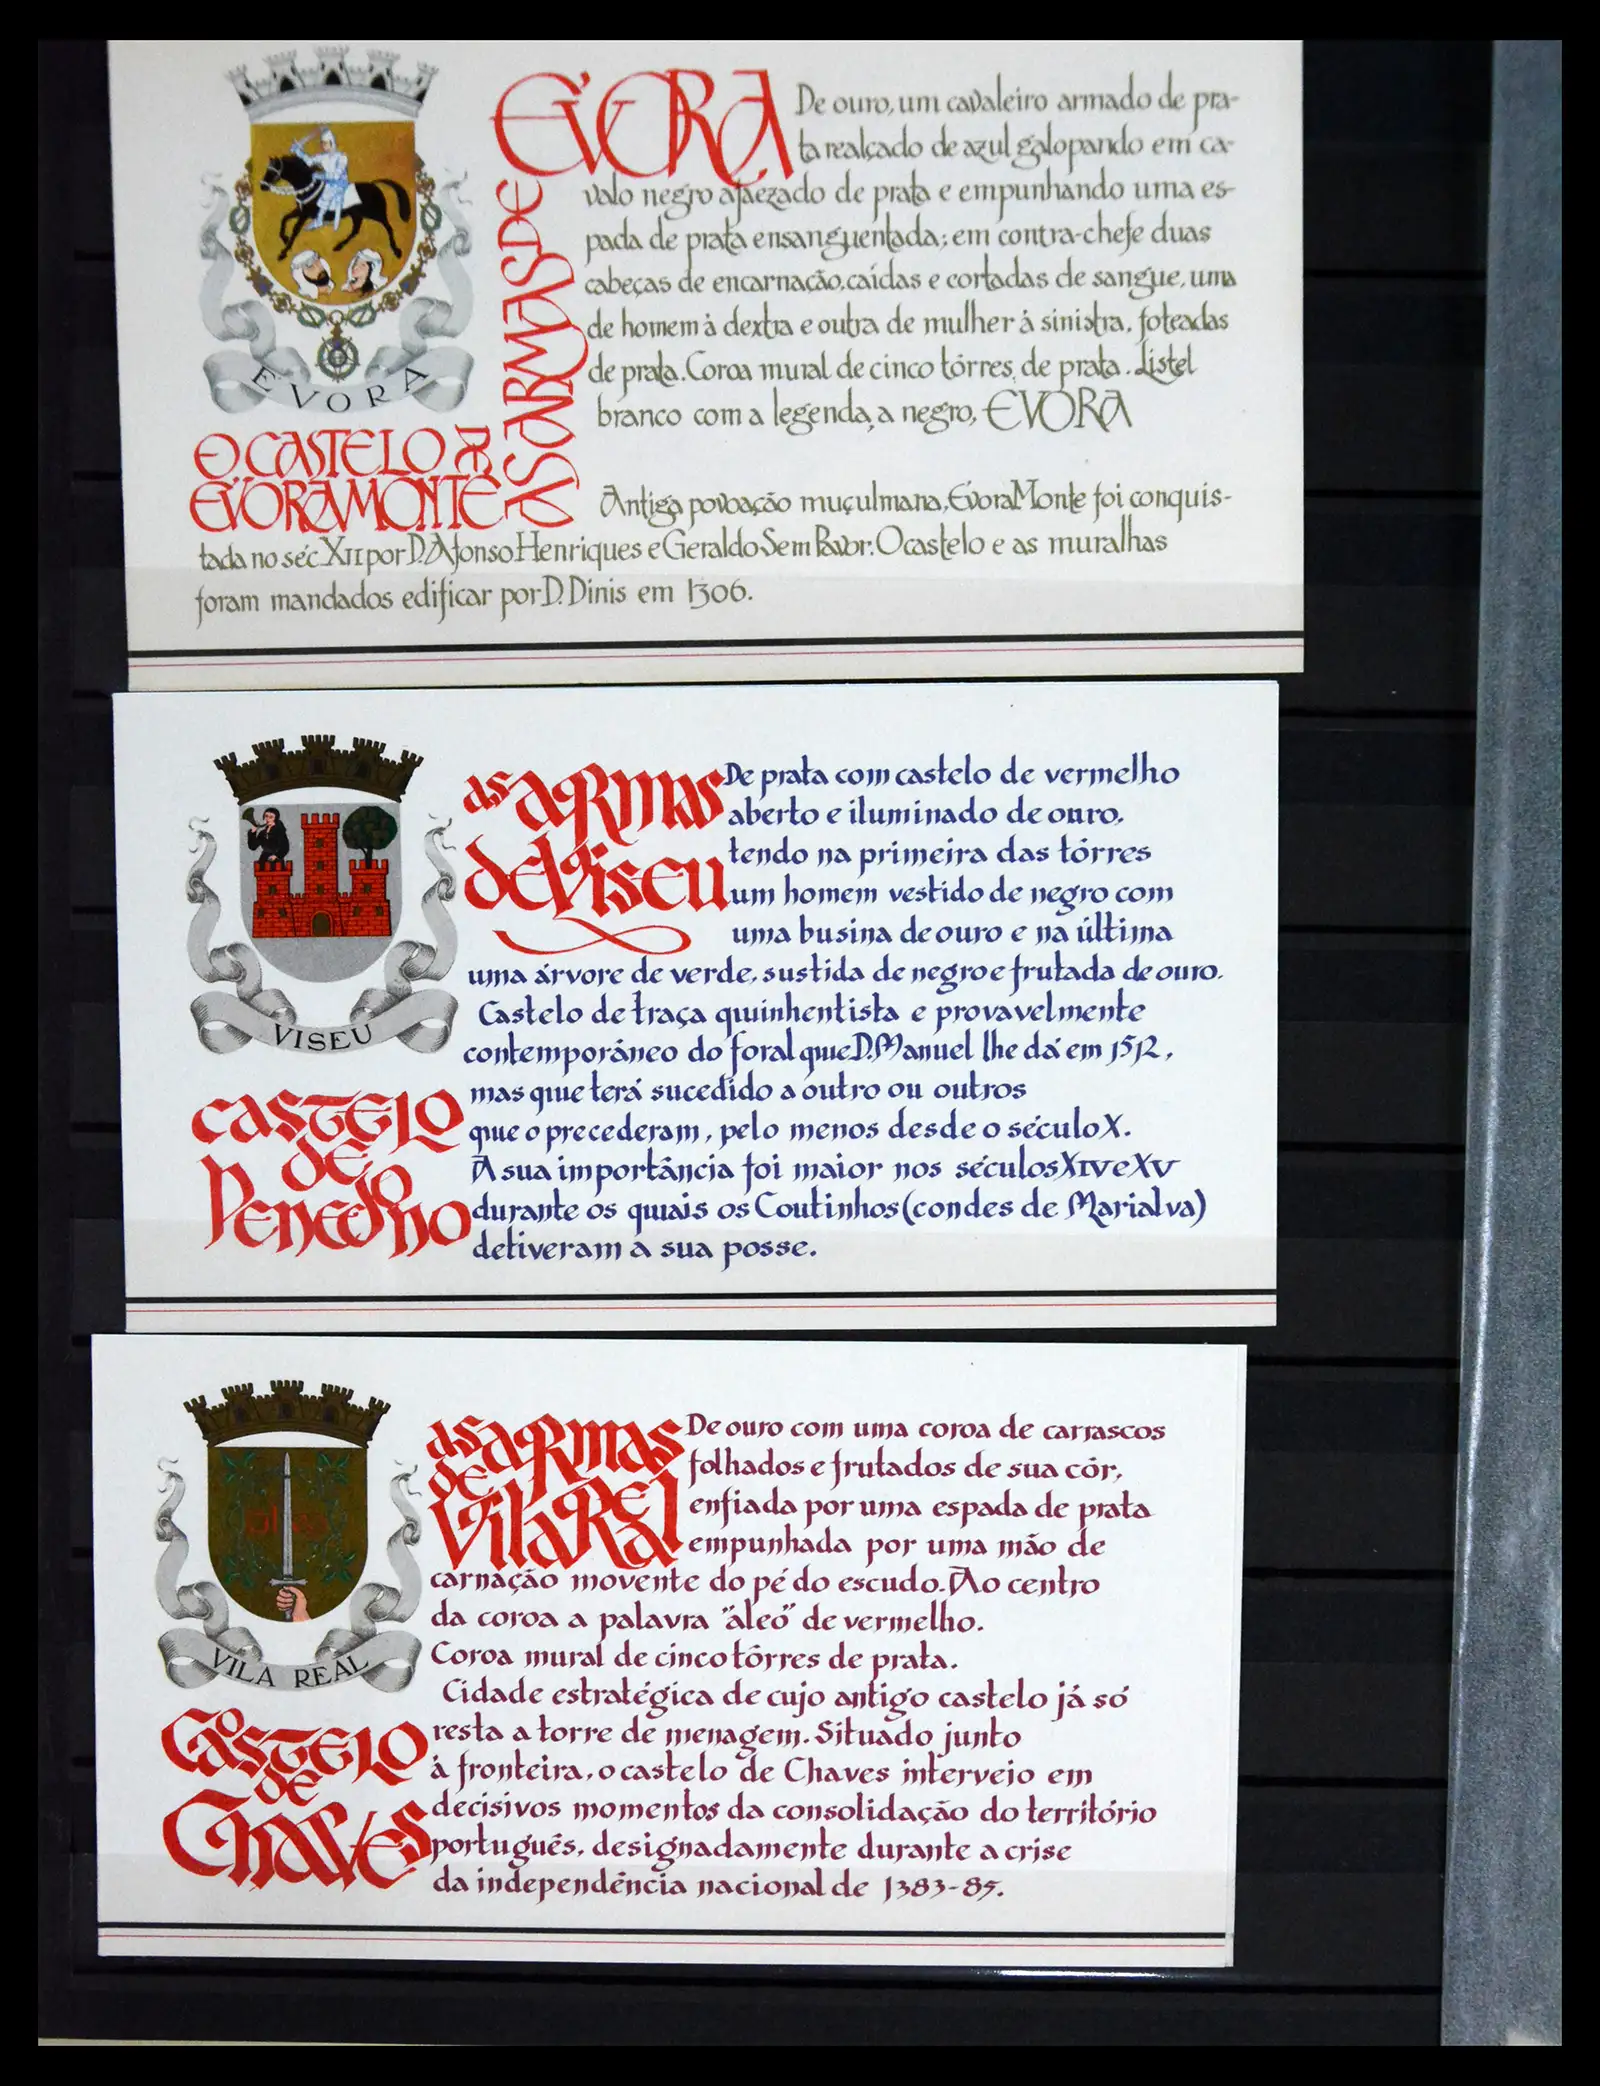 EVORA
AS ARMAS DE
EVORA
De ouro, um cavaleiro armado de pra-
ta realçado de azul galopando em ca-
valo negro ajaezado de prata e empunhando uma es-
pada de prata ensanguentada; em contra-chefe duas
cabeças de encarnação, caídas e cortadas de sangue, uma
de homem à dextra e outra de mulher à sinistra, foteadas
de prata. Coroa mural de cinco tôrres, de prata. Listel
branco com a legenda, a negro, EVORA
O CASTELO DE
EVORAMONTE
Antiga povoação muçulmana, Évora Monte foi conquis-
tada no séc. XII por D. Afonso Henriques e Geraldo Sem Pavor. O castelo e as muralhas
foram mandados edificar por D. Dinis em 1306.
VISEU
as armas
de Viseu
De prata com castelo de vermelho
aberto e iluminado de ouro,
tendo na primeira das tôrres
um homem vestido de negro com
uma busina de ouro e na última
uma árvore de verde, sustida de negro e frutada de ouro.
Castelo de traça quinhentista e provavelmente
contemporâneo do foral que D. Manuel lhe dá em 1512,
mas que terá sucedido a outro ou outros
que o precederam, pelo menos desde o século X.
A sua importância foi maior nos séculos XIV e XV
durante os quais os Coutinhos (condes de Marialva)
detiveram a sua posse.
Castelo
de
Penedono
aleo
VILA REAL
as armas
de
Vila Real
De ouro com uma coroa de carrascos
folhados e frutados de sua côr,
enfiada por uma espada de prata
empunhada por uma mão de
carnação movente do pé do escudo. Ao centro
da coroa a palavra "áleo" de vermelho.
Coroa mural de cinco tôrres de prata.
Cidade estratégica de cujo antigo castelo já só
resta a torre de menagem. Situado junto
à fronteira, o castelo de Chaves interveio em
decisivos momentos da consolidação do território
português, designadamente durante a crise
da independência nacional de 1383-85.
Castelo
de
Chaves